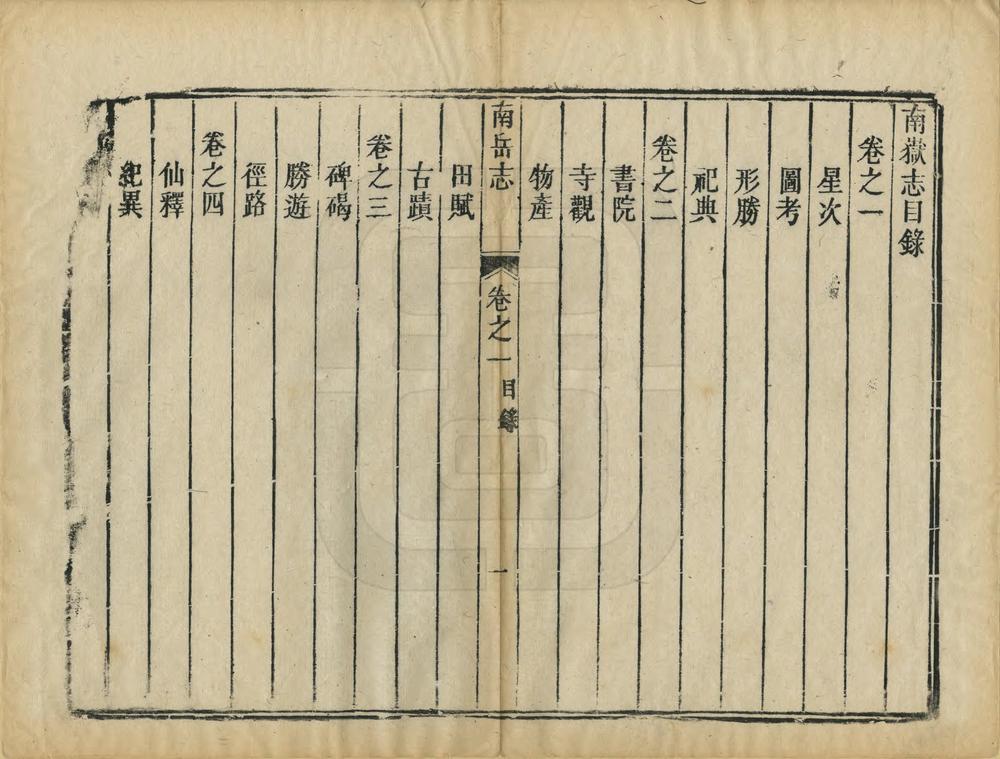 南嶽志目錄
卷之一
星次
圖考
形勝
祀典
卷之二
書院
寺觀
物產
南岳志
卷之一
目錄
一
田賦
古蹟
卷之三
碑碣
勝遊
徑路
卷之四
仙釋
紀異